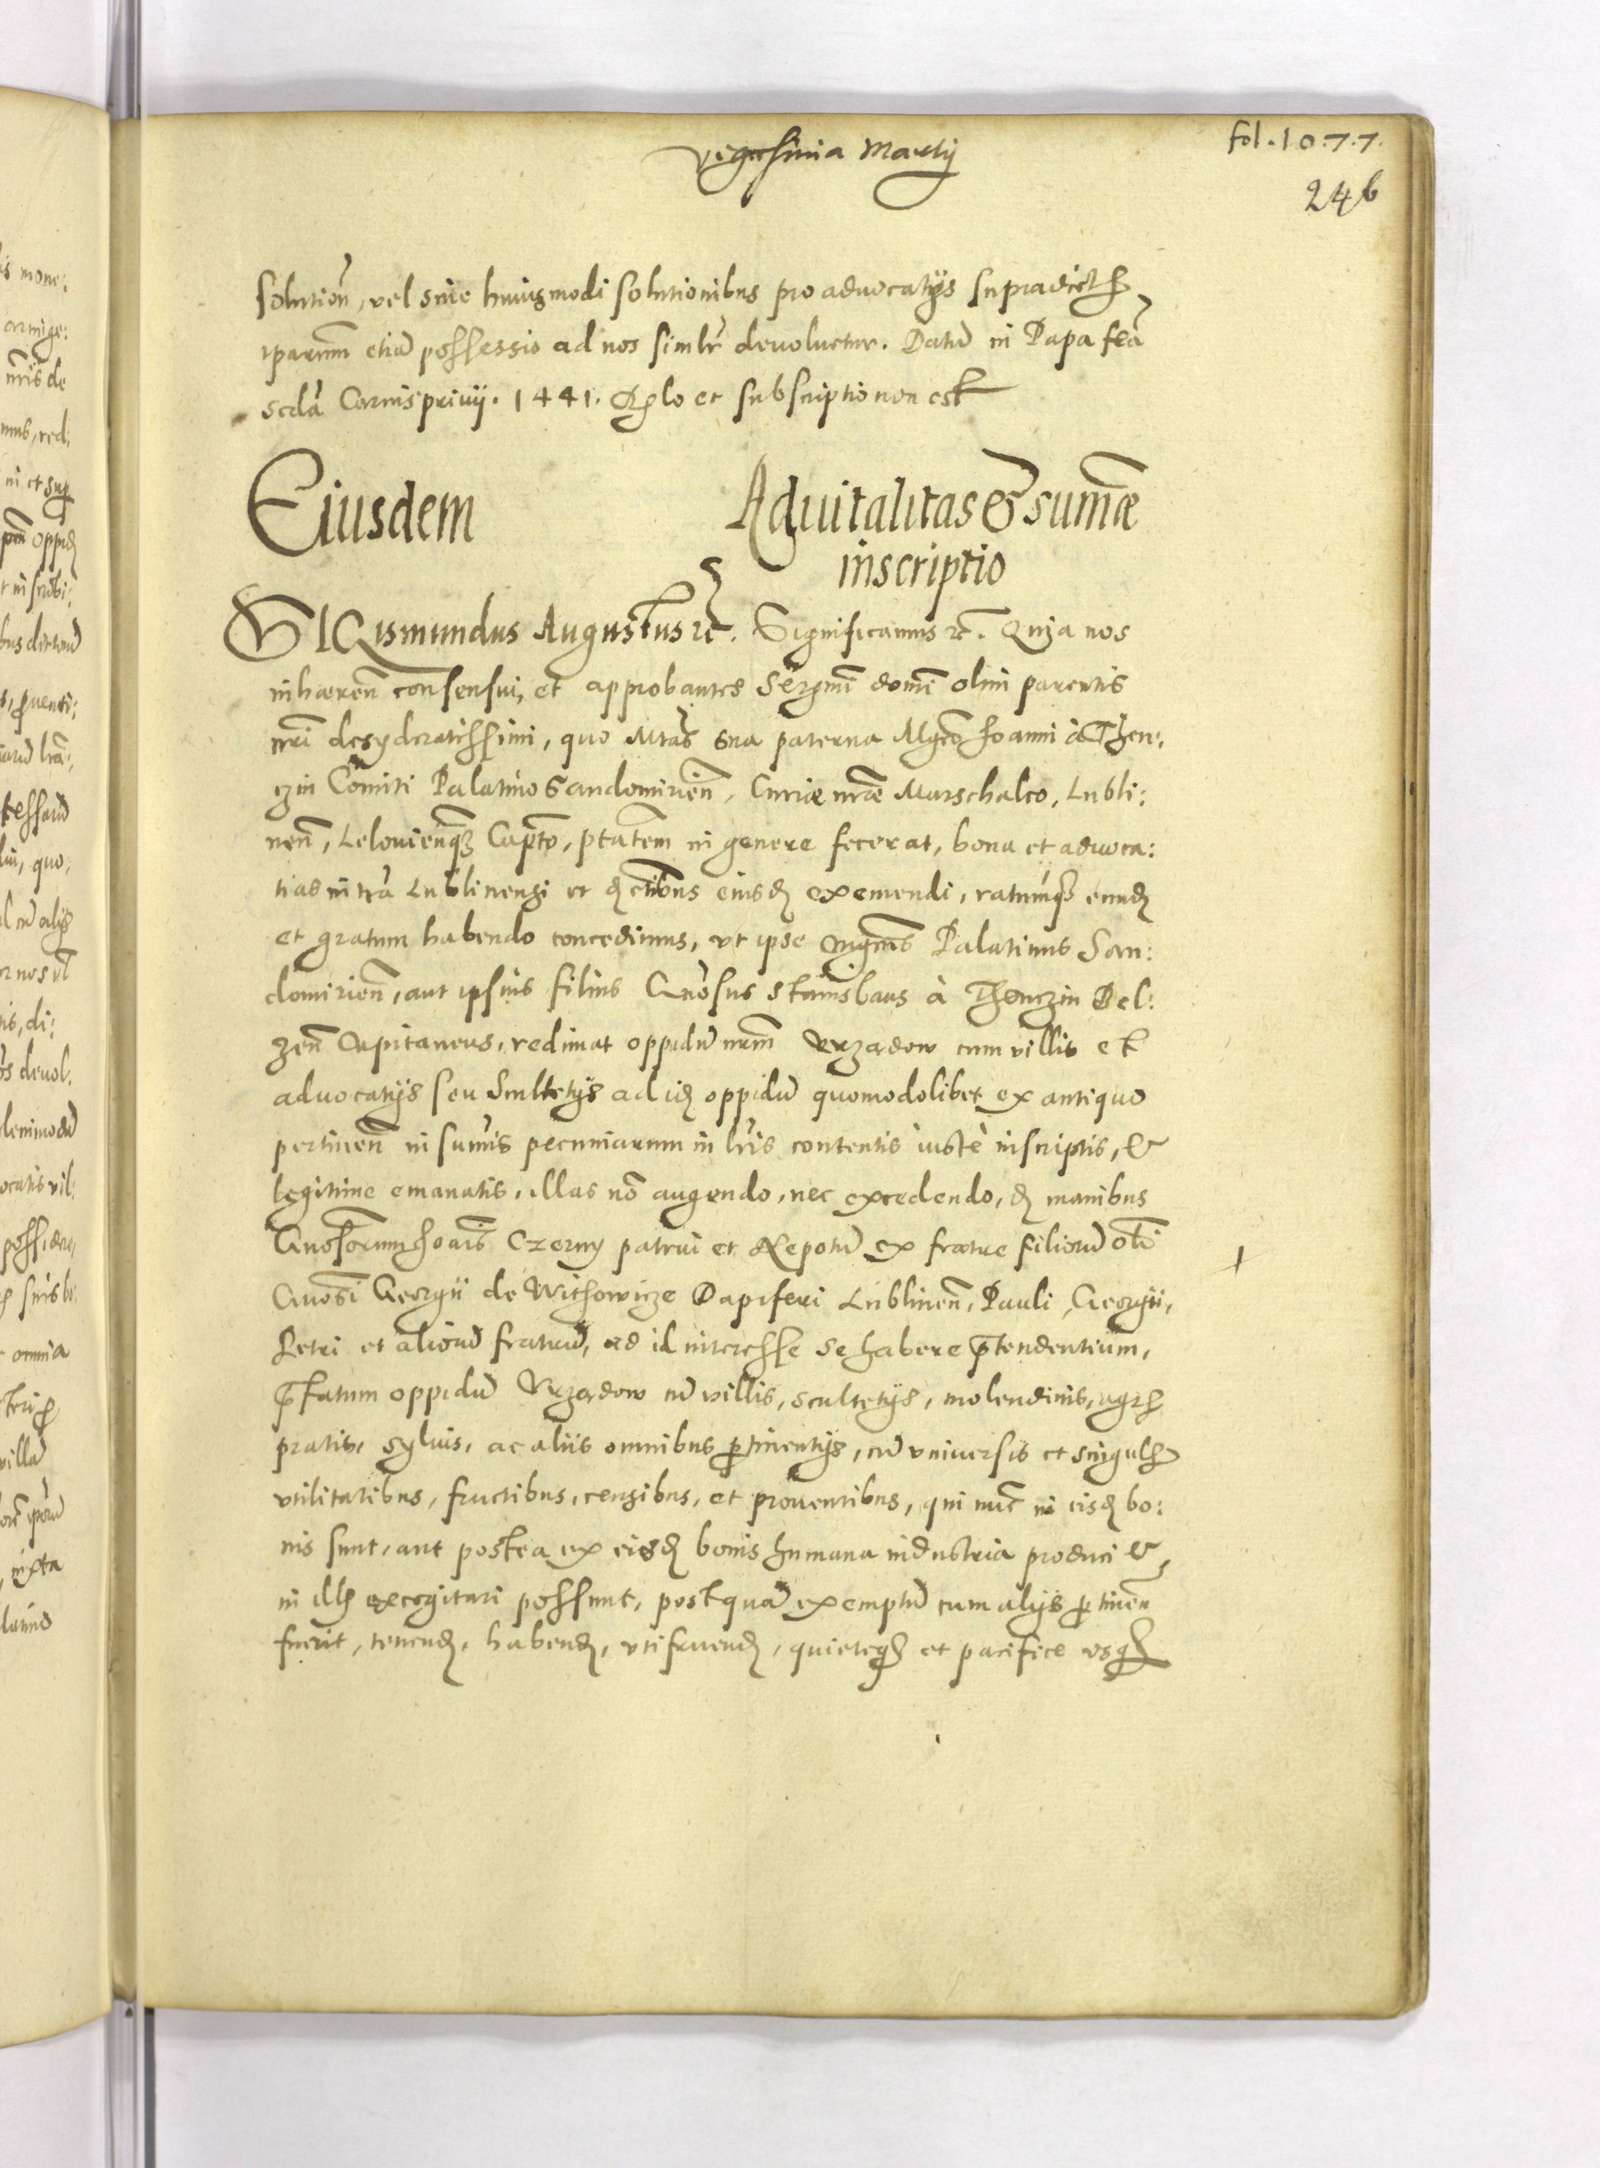 Vigesima Martij
fol. 1077.
246
solutioñ, vel sine huiusmodi solutionibus pro advocatijs supradict
iparum etiã possessio ad nos similr devoluetur. Datũ in Papa feã
scdã Carnisprivij. 1441. et subscriptio non est
Eiusdem Advitalitas & sumæ
inscriptio
SIGismundus Augustus rc. Significamus rc. Quia nos
inhæreñ consensui, et approbantes Serenmi domi olim parentis
nri desyderatissimi, quo Mtas sua paterna Mgco Joanni à Then:
czin Comiti Palatino Sandomirieñ, Curiæ nræ Marschalco, Lubli:
neñ, Lelovieñq3 Capto, ptatem in genere fecerat, bona et advoca:
tias in tra Lublinensi et de ctibus eiusd exemendi, ratumq3 eund
et gratum habendo concedimus, ut ipse Mgcus Palatinus San:
domirieñ, aut ipsius filius Gnosus Stanislaus à Thenczin Bel:
zeñ Capitaneus, redimat oppidũ nrm Urzadow cum villis et
advocatijs seu Scultetijs ad id oppidũ quomodolibet ex antiquo
pertineñ in sumis pecuniarum in lris contentis iuste inscriptis, &
legitime emanatis, illas nõ augendo, nec excedendo, de manibus
Gnosorum Joanis Czerny patrui et Nepotũ ex fratre filiorũ oli
Gnosi Georgii de Withowicze Dapiferi Lublineñ, Pauli, Georgii,
Petri et aliorũ fratrũ, ad id interesse se habere prtendentium,
prfatum oppidũ Urzadow cũ villis, scultetijs, molendinis, agr
pratis, sylvis, ac aliis omnibus pertinentijs, cũ universis et singul
utilitatibus, fructibus, censibus, et proventibus, qui nũc in eisd bo:
nis sunt, aut postea ex eisd bonis humana industria produci &
in ill excogitari possunt, postquã exemptũ cum alijs pertineñ
fuerit, tenend, habend, utifruend, quieteq3 et pacifice usq3